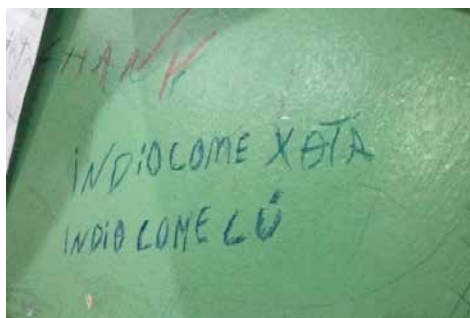 INDIOCOME XOTA
INDIO COME CÚ